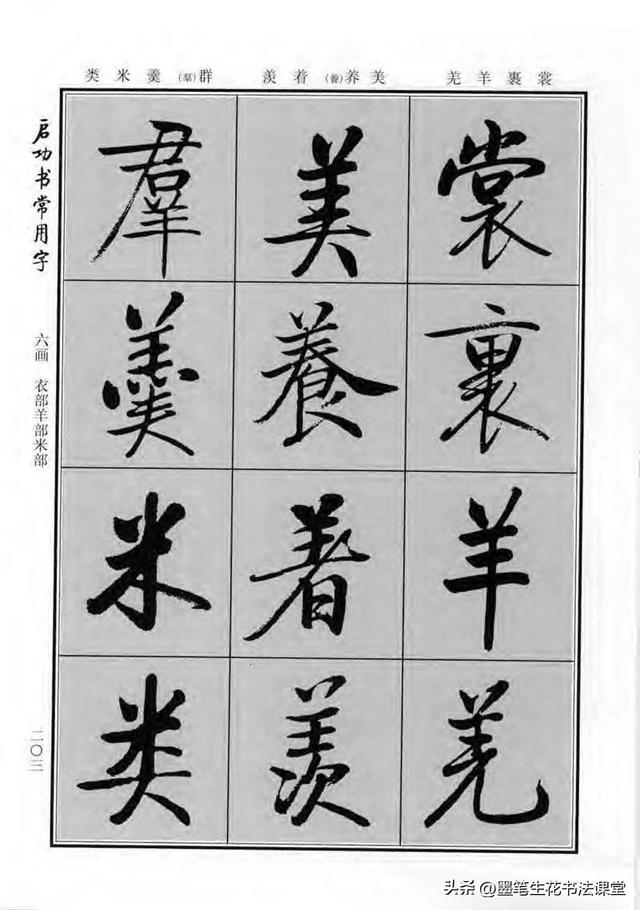 裳裹羊羌
美养(養)着羡
群(羣)羹米类
启功书常用字
六画 衣部羊部米部
二〇三
裳裹羊羌
美養着羡
羣羹米类
头条 @墨笔生花书法课堂